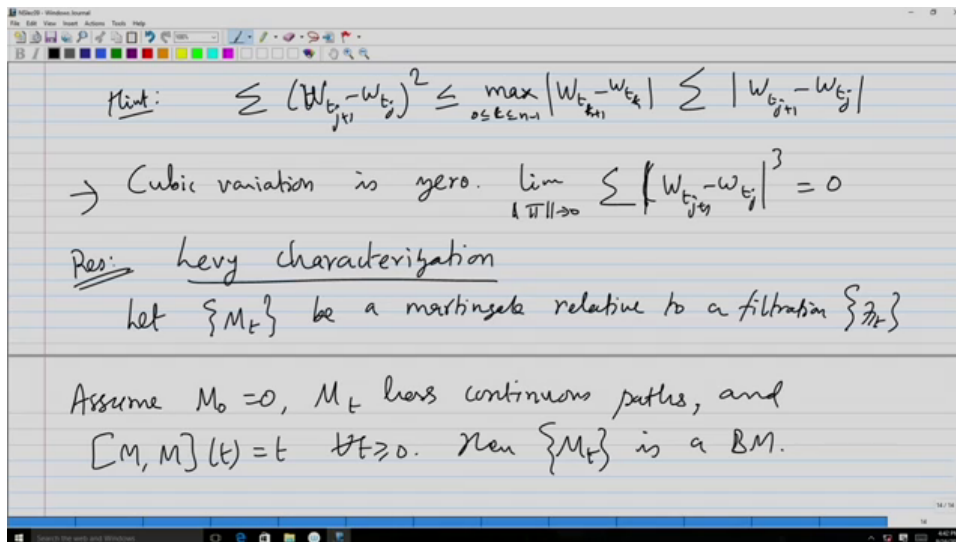 NDec09 - Windows Journal
File Edit View Insert Actions Tools Help
Hint: ∑ (W_{t_{j+1}} - W_{t_j})^2 ≤ max_{0≤k≤n-1} |W_{t_{k+1}} - W_{t_k}| ∑ |W_{t_{j+1}} - W_{t_j}|
→ Cubic variation is zero. lim_{‖Π‖→0} ∑ |W_{t_{j+1}} - W_{t_j}|^3 = 0
Res: Levy characterization
Let {M_t} be a martingale relative to a filtration {ℱ_t}
Assume M_0 = 0, M_t has continuous paths, and
[M, M](t) = t ∀t ≥ 0. Then {M_t} is a BM.
14 / 14
14
Search the web and Windows